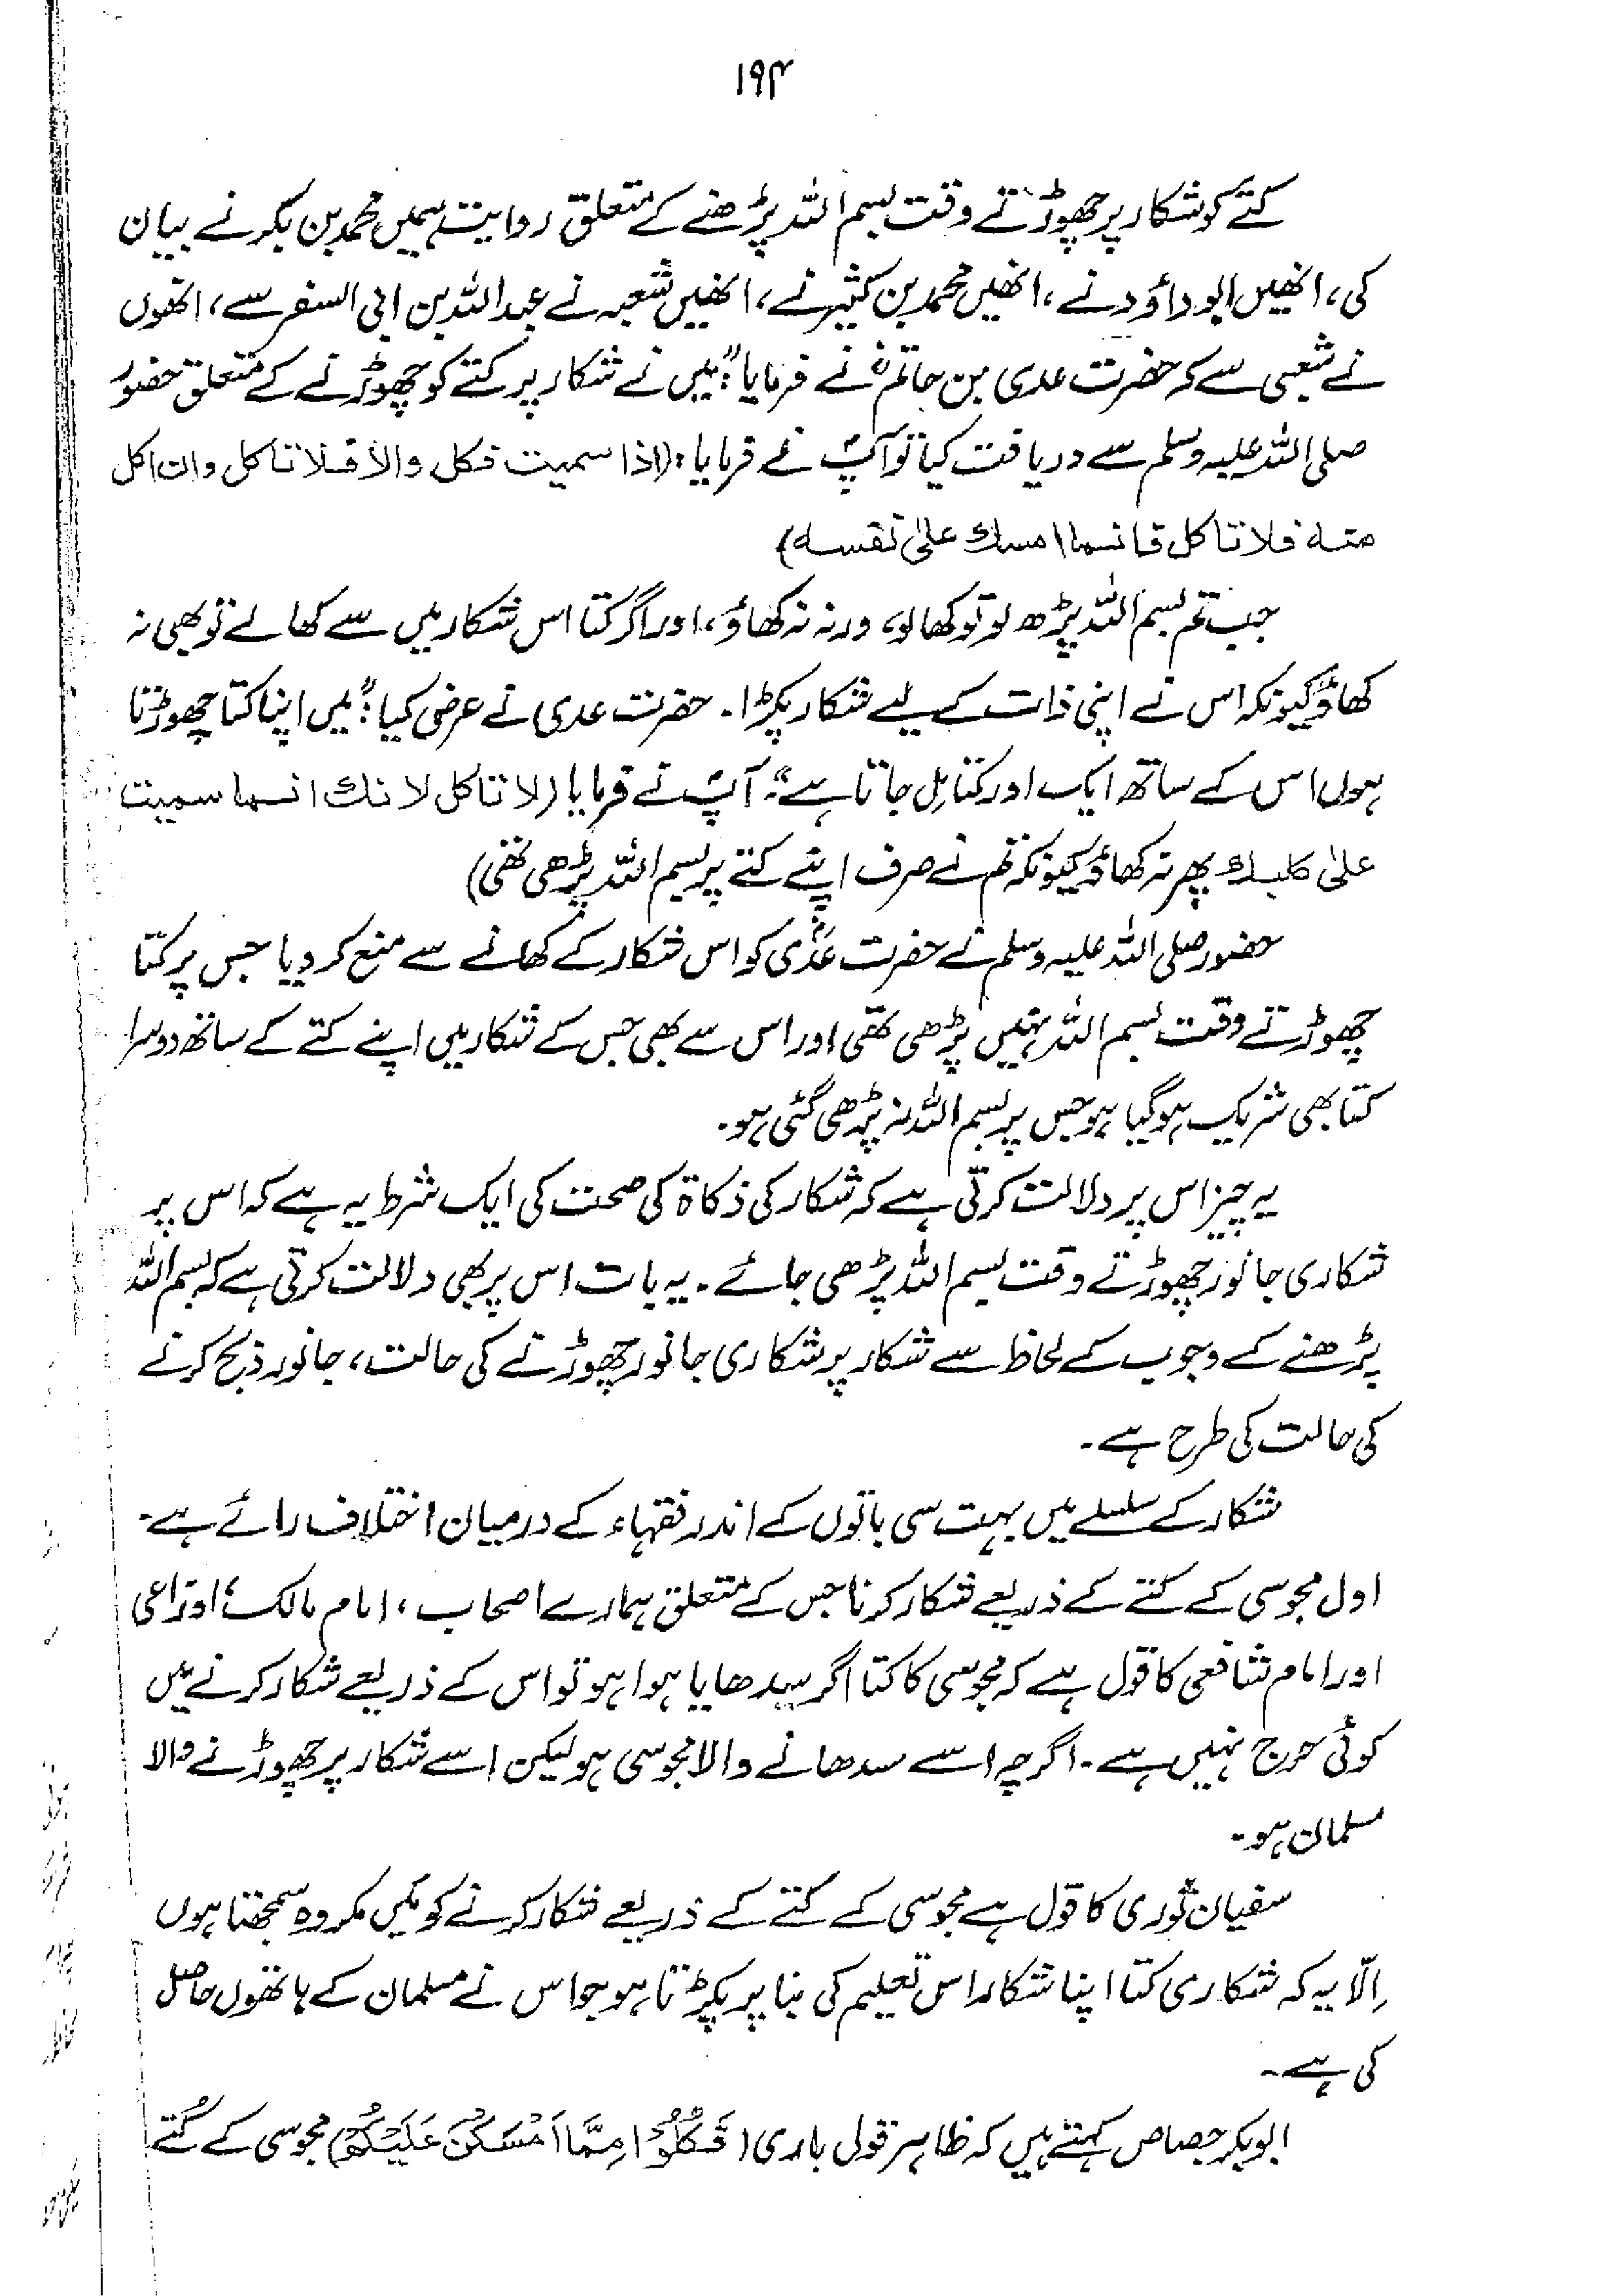 ۱۹۴
کتے کو شکار پر چھوڑتے وقت بسم اللہ پڑھنے کے متعلق روایت ہمیں محمد بن بکر نے بیان
کی، انھیں ابو داؤد نے، انھیں محمد بن کثیر نے، انھیں شعبہ نے عبداللہ بن ابی السفر سے، انھوں
نے شعبی سے کہ حضرت عدی بن حاتمؓ نے فرمایا: "میں نے شکار پر کتے کو چھوڑنے کے متعلق حضور
صلی اللہ علیہ وسلم سے دریافت کیا تو آپؐ نے فرمایا: (اذا سمیت فکل والا فلا تاکل وان اکل
منه فلا تاکل فانما امسك علی نفسه)
جب تم بسم اللہ پڑھ لو تو کھا لو، ورنہ نہ کھاؤ، اور اگر کتا اس شکار میں سے کھا لے تو بھی نہ
کھاؤ کیونکہ اس نے اپنی ذات کے لیے شکار پکڑا۔ حضرت عدی نے عرض کیا: "میں اپنا کتا چھوڑتا
ہوں اس کے ساتھ ایک اور کتا مل جاتا ہے"۔ آپؐ نے فرمایا (لا تاکل لانك انما سمیت
علی کلبك پھر نہ کھاؤ کیونکہ تم نے صرف اپنے کتے پر بسم اللہ پڑھی تھی)
حضور صلی اللہ علیہ وسلم نے حضرت عدیؓ کو اس شکار کے کھانے سے منع کر دیا جس پر کتا
چھوڑتے وقت بسم اللہ نہیں پڑھی تھی اور اس سے بھی جس کے شکار میں اپنے کتے کے ساتھ دوسرا
کتا بھی شریک ہو گیا ہو جس پر بسم اللہ نہ پڑھی گئی ہو۔
یہ چیز اس پر دلالت کرتی ہے کہ شکار کی ذکاۃ کی صحت کی ایک شرط یہ ہے کہ اس پر
شکاری جانور چھوڑتے وقت بسم اللہ پڑھی جائے۔ یہ بات اس پر بھی دلالت کرتی ہے کہ بسم اللہ
پڑھنے کے وجوب کے لحاظ سے شکار پر شکاری جانور چھوڑنے کی حالت، جانور ذبح کرنے
کی حالت کی طرح ہے۔
شکار کے سلسلے میں بہت سی باتوں کے اندر فقہاء کے درمیان اختلاف رائے ہے۔
اول مجوسی کے کتے کے ذریعے شکار کرنا جس کے متعلق ہمارے اصحاب، امام مالکؒ، اوزاعی
اور امام شافعی کا قول ہے کہ مجوسی کا کتا اگر سدھایا ہوا ہو تو اس کے ذریعے شکار کرنے میں
کوئی حرج نہیں ہے۔ اگرچہ اسے سدھانے والا مجوسی ہو لیکن اسے شکار پر چھوڑنے والا
مسلمان ہو۔
سفیان ثوری کا قول ہے مجوسی کے کتے کے ذریعے شکار کرنے کو میں مکروہ سمجھتا ہوں
اِلّا یہ کہ شکاری کتا اپنا شکار اس تعلیم کی بنا پر پکڑتا ہو جو اس نے مسلمان کے ہاتھوں حاصل
کی ہے۔
ابوبکر جصاص کہتے ہیں کہ ظاہر قول باری (فَكُلُوْا مِمَّا اَمْسَكْنَ عَلَيْكُمْ) مجوسی کے کُتے